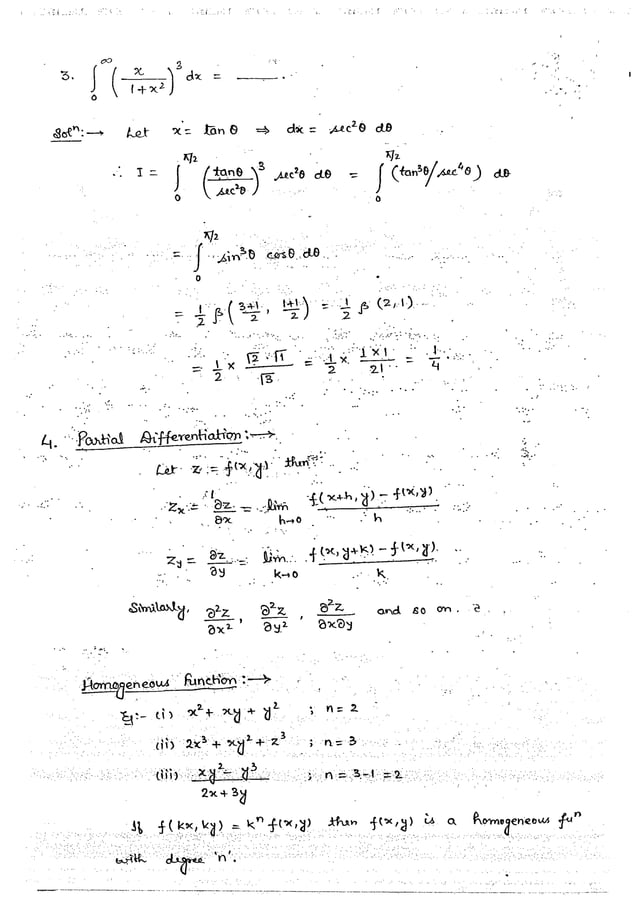 3. ∫₀^∞ (x/(1+x²))³ dx = ____.
Solⁿ:→ Let x = tan θ ⇒ dx = sec²θ dθ
∴ I = ∫₀^{π/2} (tanθ/sec²θ)³ sec²θ dθ = ∫₀^{π/2} (tan³θ/sec⁴θ) dθ
= ∫₀^{π/2} sin³θ cosθ dθ
= 1/2 β(3+1/2, 1+1/2) = 1/2 β(2,1)
= 1/2 × √2·√1/√3 = 1/2 × 1×1/2! = 1/4.
4. Partial Differentiation:→
Let z = f(x,y) then
Zx = ∂z/∂x = lim h→0 f(x+h, y) − f(x,y)/h
Zy = ∂z/∂y = lim k→0 f(x, y+k) − f(x,y)/k
Similarly, ∂²z/∂x², ∂²z/∂y², ∂²z/∂x∂y and so on.
Homogeneous Function:→
Eg:- (i) x² + xy + y² ; n = 2
(ii) 2x³ + xy² + z³ ; n = 3
(iii) xy² − y³/2x + 3y ; n = 3−1 = 2
If f(kx, ky) = kⁿ f(x,y) then f(x,y) is a homogeneous fuⁿ
with degree 'n'.